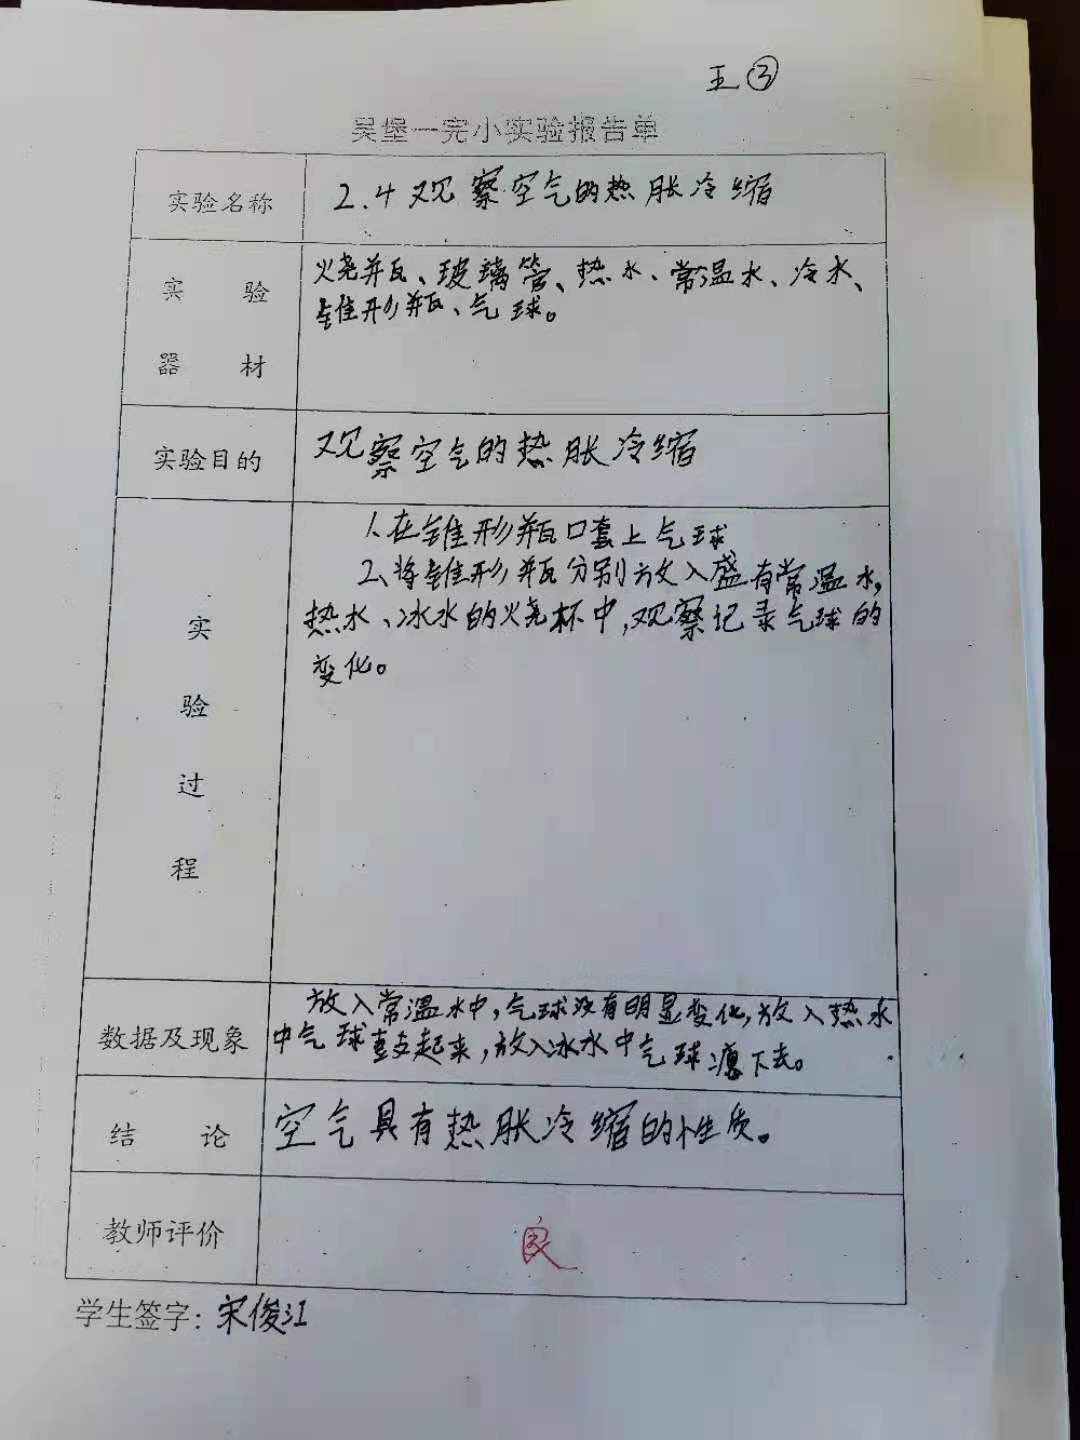 五③
吴堡一完小实验报告单
实验名称
2.4观察空气的热胀冷缩
实 验
器 材
火烧并瓦、玻璃管、热水、常温水、冷水、
锥形瓶、气球。
实验目的
观察空气的热胀冷缩
实
验
过
程
1.在锥形瓶口套上气球
2、将锥形瓶分别放入盛有常温水,
热水、冰水的烧杯中,观察记录气球的
变化。
数据及现象
放入常温水中,气球没有明显变化,放入热水
中气球鼓起来,放入冰水中气球瘪下去。
结 论
空气具有热胀冷缩的性质。
教师评价
良
学生签字:宋俊江